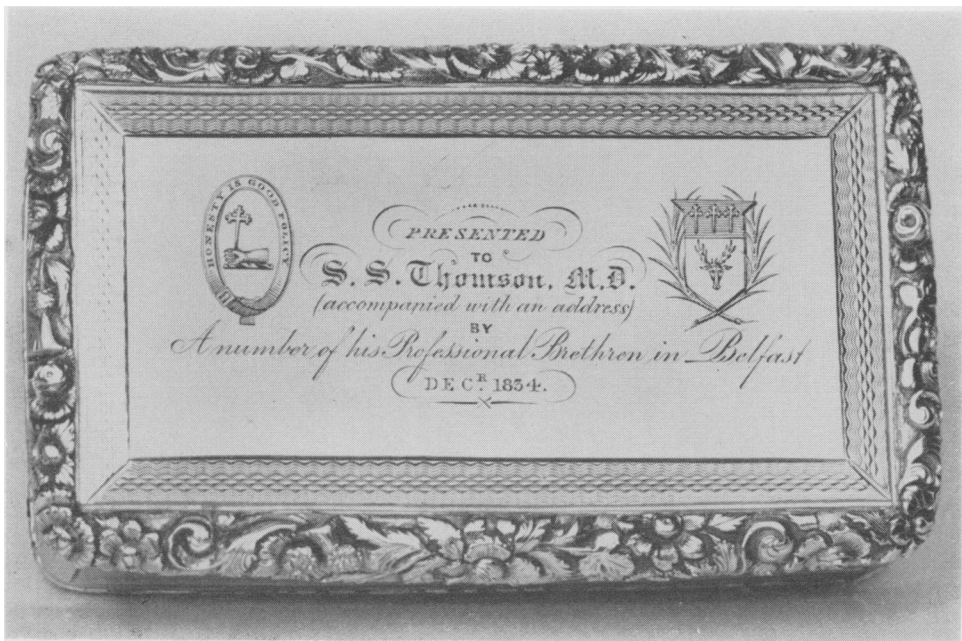 HONESTY IS GOOD POLICY
PRESENTED
TO
S. S. Thomson, M.D.
(accompanied with an address)
BY
A number of his Professional Brethren in Belfast
DECR. 1834.